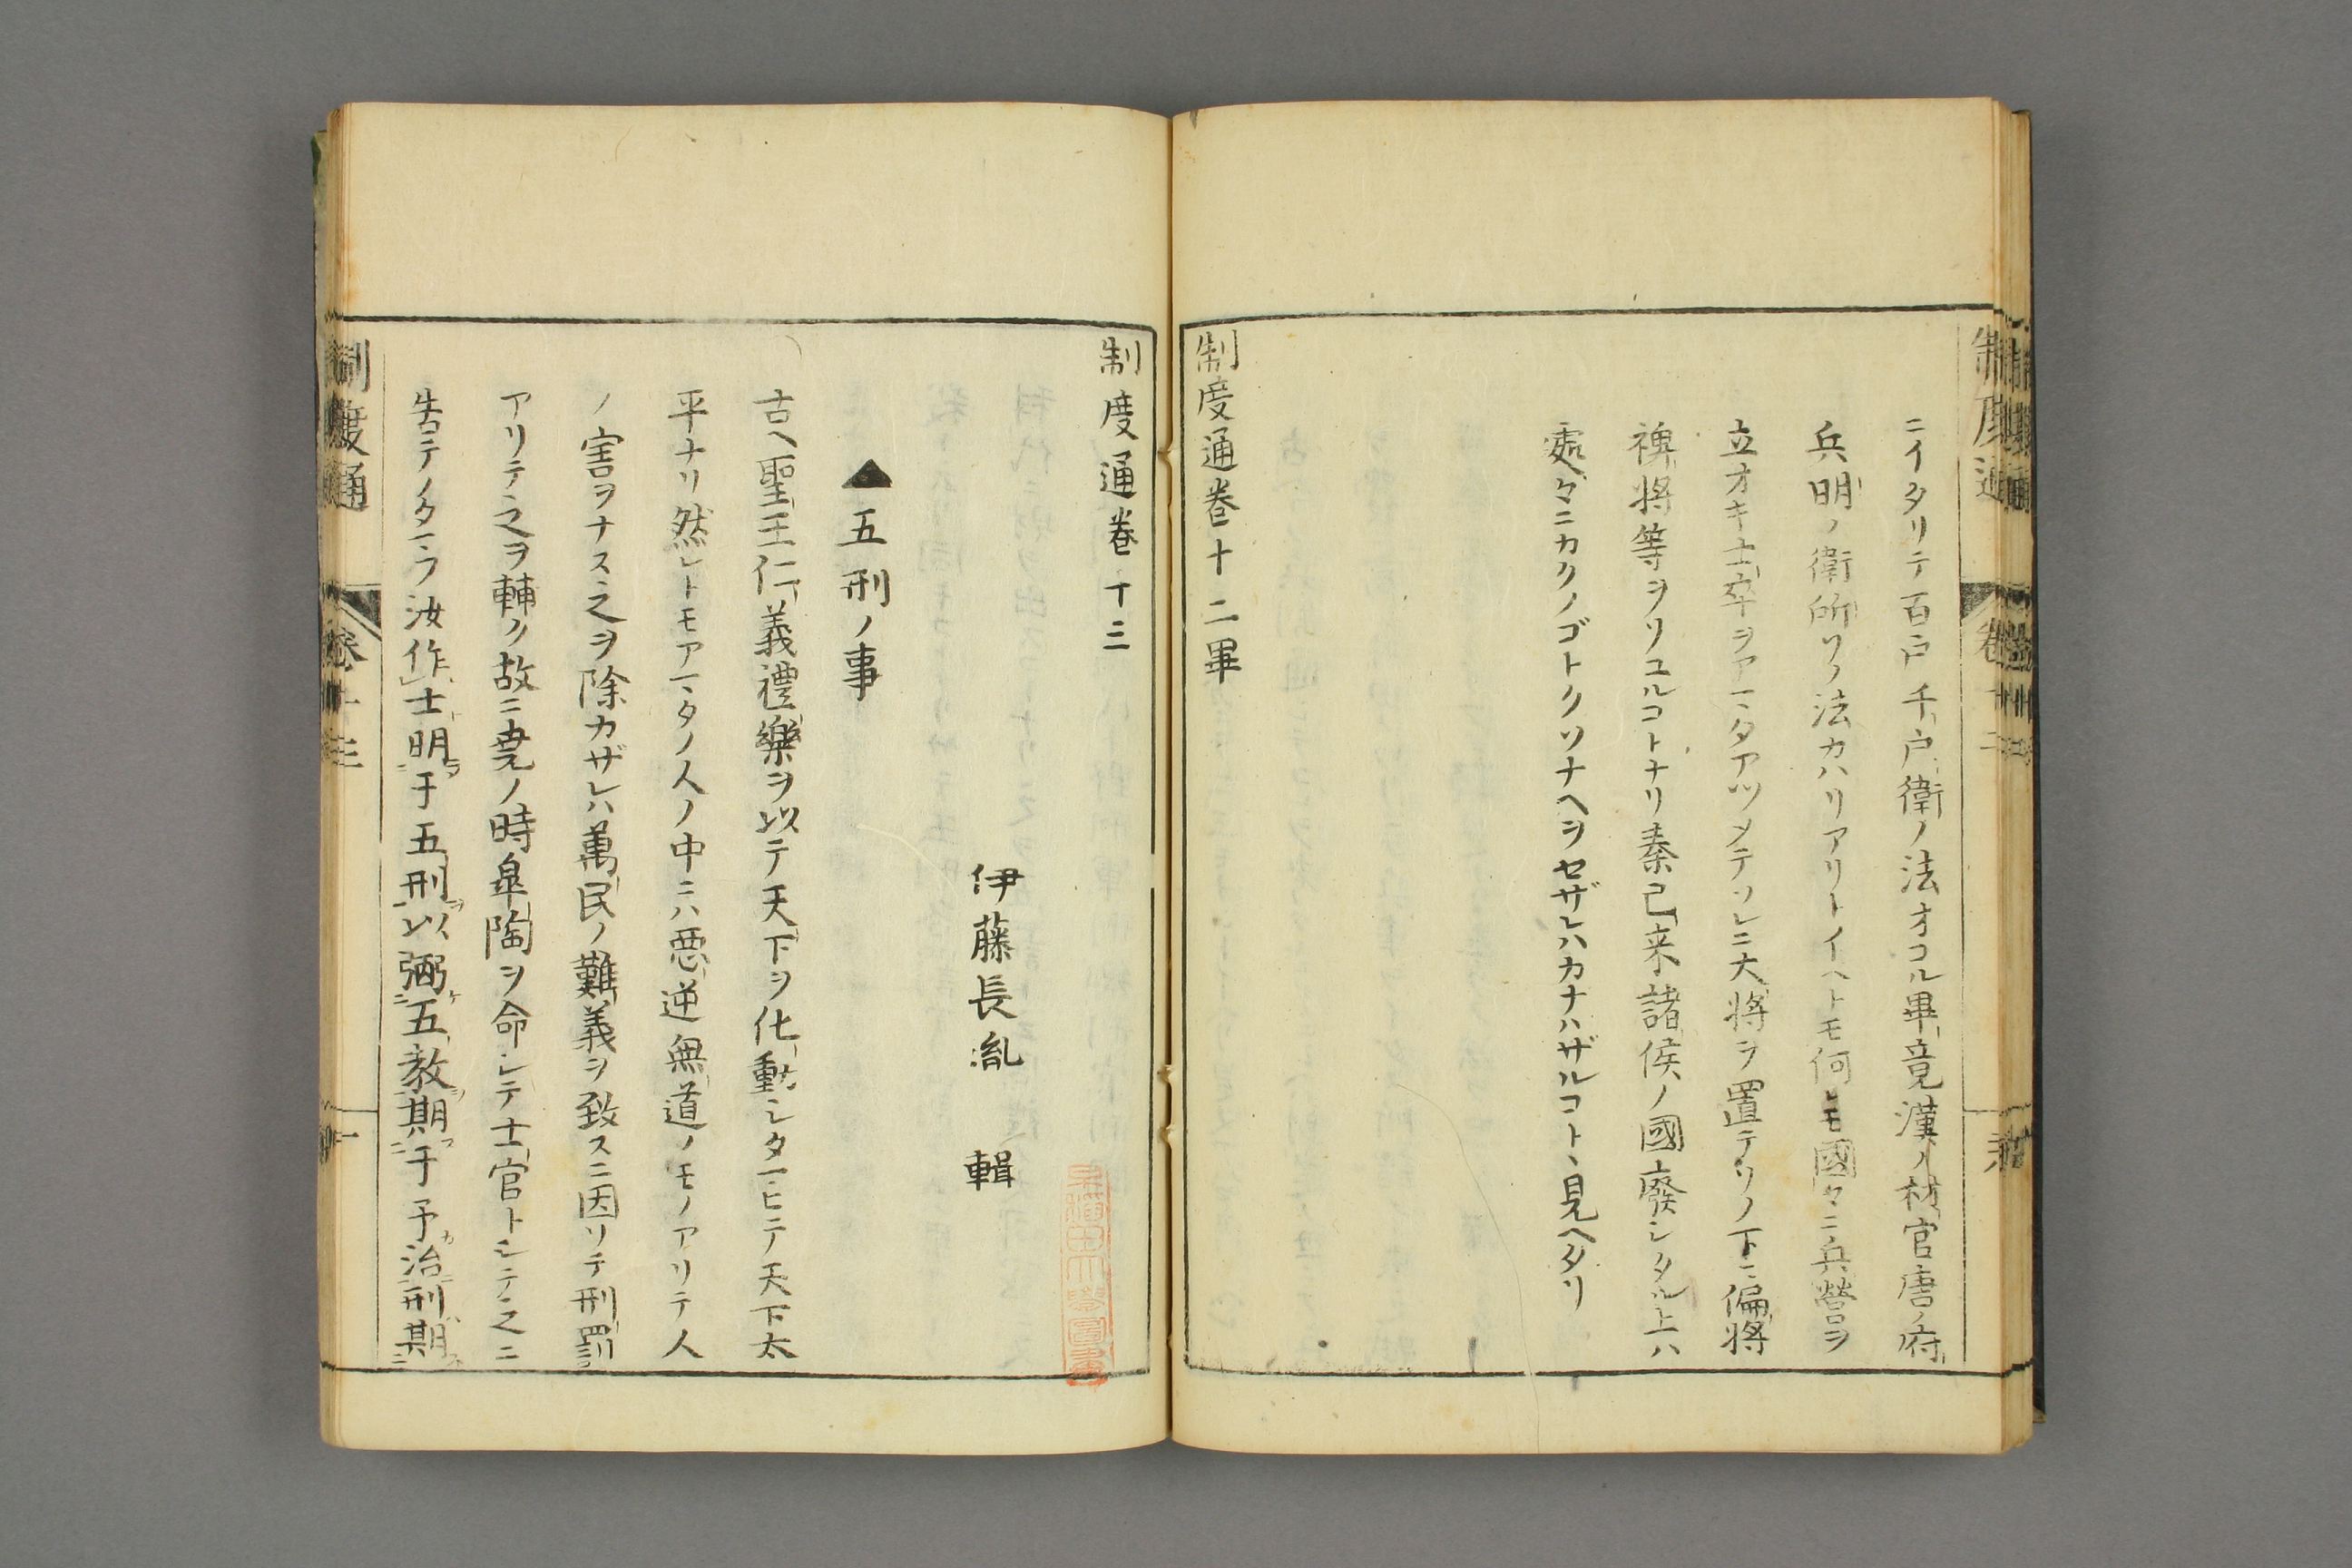 ニイタリテ百戸千戸衛ノ法オコル畢竟漢ノ材官唐ノ府
兵明ノ衛所ソノ法カハリアリトイヘトモ何レモ國々ニ兵營ヲ
立オキ士卒ヲアマタアツメテソレニ大將ヲ置テソノ下ニ偏將
裨將等ヲソユルコトナリ秦已来諸侯ノ國廢シタル上ハ
處々ニカクノゴトクソナヘヲセザレハカナハザルコトヽ見ヘタリ
制度通巻十二畢
制度通巻十三
伊藤長胤 輯
▲五刑ノ事
古ヘ聖王仁義禮樂ヲ以テ天下ヲ化動シタマヒテ天下太
平ナリ然レトモアマタノ人ノ中ニハ惡逆無道ノモノアリテ人
ノ害ヲナス之ヲ除カザレハ萬民ノ難義ヲ致スニ因ソテ刑罰
アリテ之ヲ輔ク故ニ堯ノ時皐陶ヲ命シテ士官トシテ之ニ
告テノタマフ汝作士明于五刑以弼五教期于予治刑期
制度通
巻十三
一